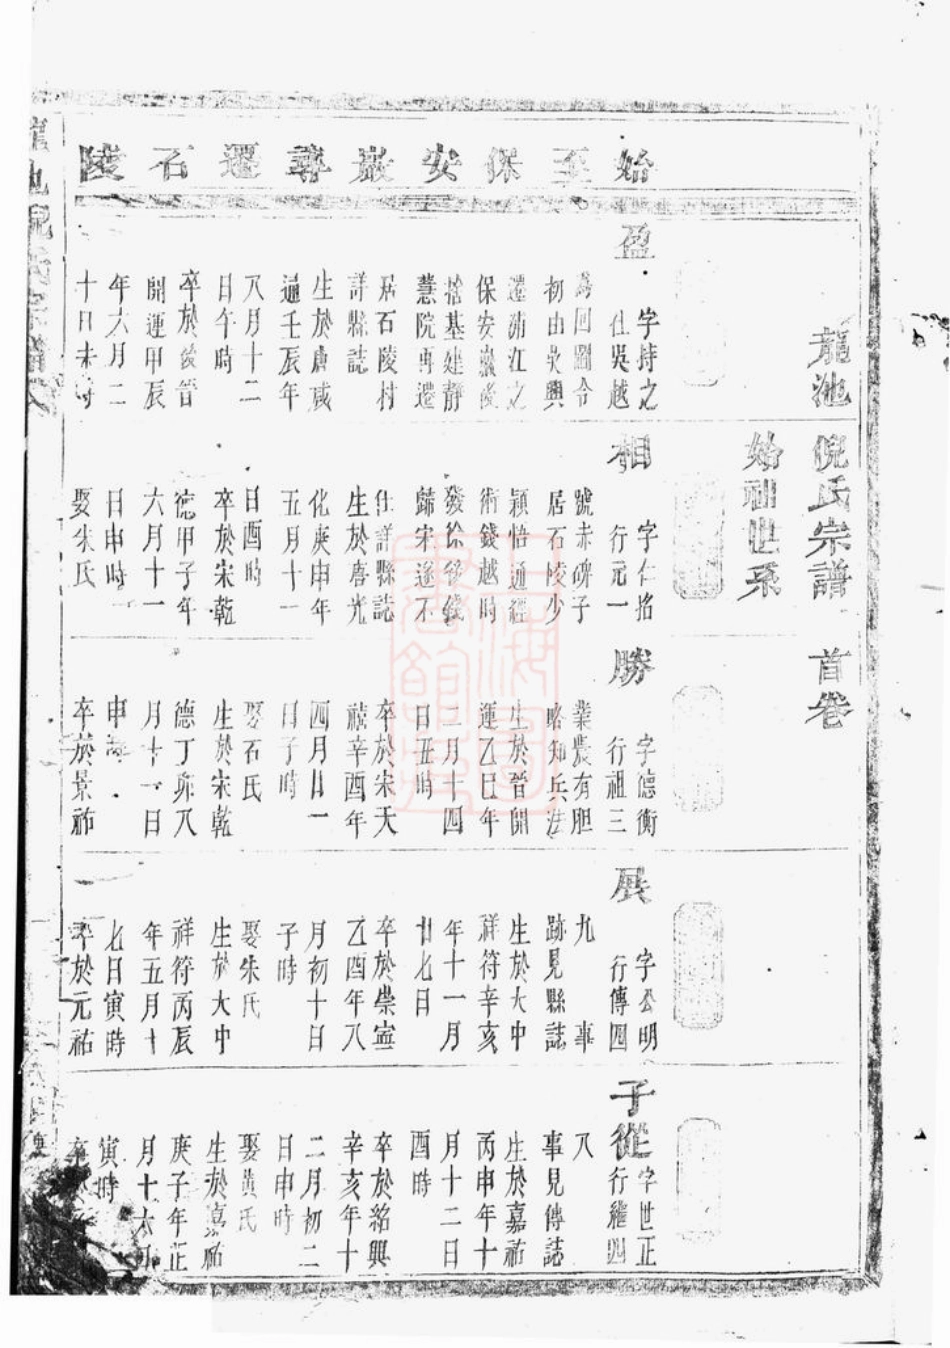 龍池　倪氏宗譜　首卷
始祖世系
始至保安巖尋遷石陵
盈
字持之
仕吳越
為回圖令
初由吳興
遷浦江之
保安巖後
捨基建靜
慧院再遷
居石陵村
詳縣誌
生於唐咸
通壬辰年
八月十二
日午時
卒於後晉
開運甲辰
年六月二
十日未時
相
字仁恪
行元一
號赤碑子
居石陵少
穎悟通經
術錢越時
發徐後錢
歸宋遂不
仕詳縣誌
生於唐光
化庚申年
五月十一
日酉時
卒於宋乾
德甲子年
六月十一
日申時
娶朱氏
勝
字德衡
行祖三
業農有胆
略知兵法
生於晉開
運乙巳年
二月十四
日丑時
卒於宋天
禧辛酉年
四月廿一
日子時
娶石氏
生於宋乾
德丁卯八
月十一日
申時
卒於景祐
展
字公明
行傳四
九　事
跡見縣誌
生於大中
祥符辛亥
年十一月
廿七日
卒於崇寧
乙酉年八
月初十日
子時
娶朱氏
生於大中
祥符丙辰
年五月十
七日寅時
卒於元祐
子從
字世正
行繼四
八
事見傳誌
生於嘉祐
丙申年十
月十二日
酉時
卒於紹興
辛亥年十
二月初二
日申時
娶黃氏
生於嘉祐
庚子年正
月十六日
寅時
卒
龍池倪氏宗譜